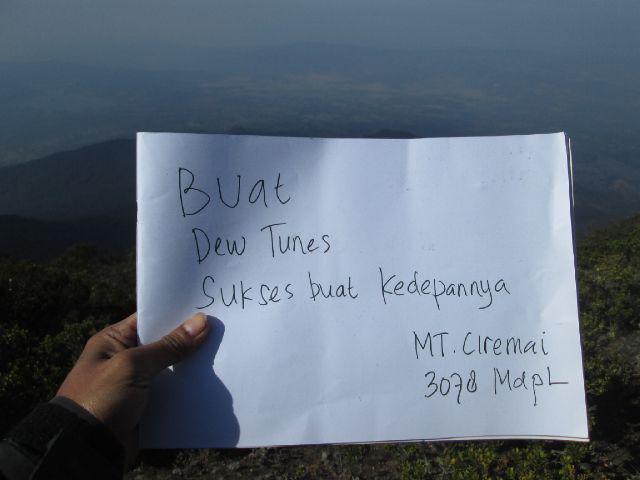 Buat
Dew Tunes
Sukses buat kedepannya
MT. CIremai
3078 MdpL